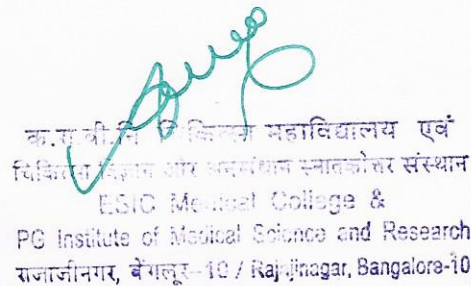 क.रा.बी.नि चिकित्सा महाविद्यालय एवं
चिकित्सा विज्ञान और अनुसंधान स्नातकोत्तर संस्थान
ESIC Medical College &
PG Institute of Medical Science and Research
राजाजीनगर, बेंगलूर-10 / Rajajinagar, Bangalore-10